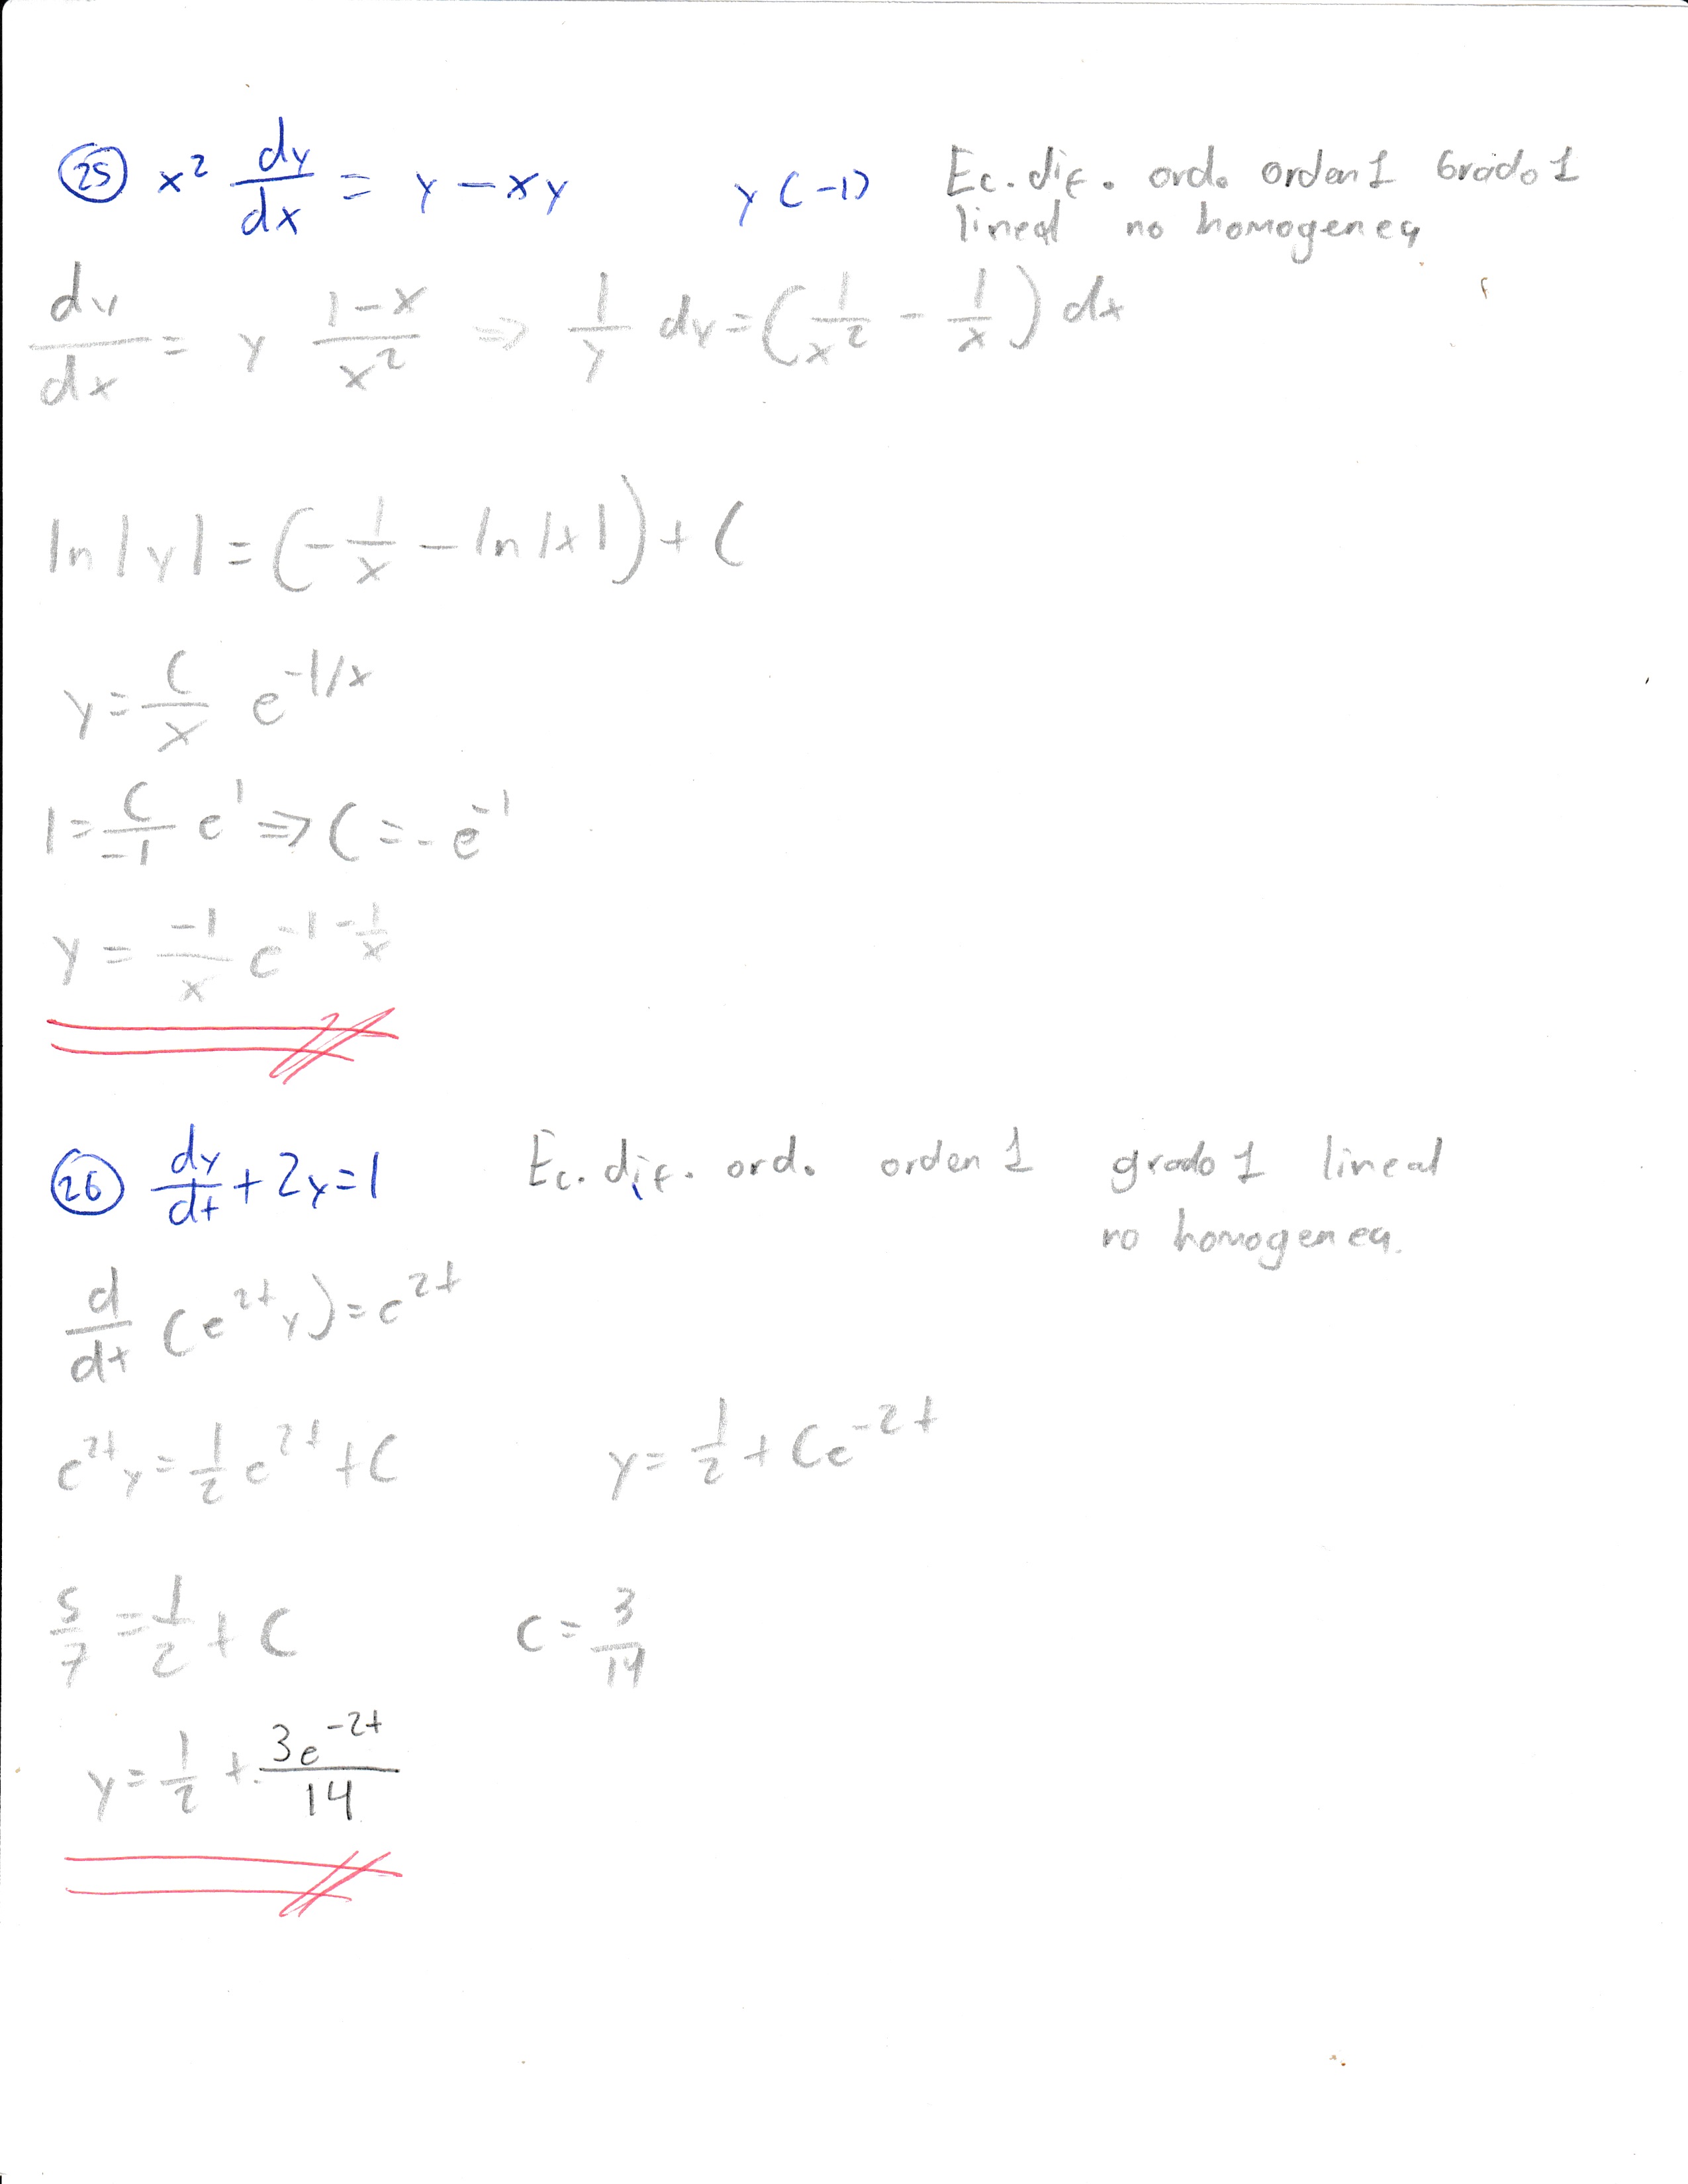 25 x² dy/dx = y - xy y(-1) Ec. dif. ord. orden 1 Grado 1
lineal no homogenea
dy/dx = y (1-x)/x² => 1/y dy = (1/x² - 1/x) dx
ln|y| = (-1/x - ln|x|) + C
y = C/x e^(-1/x)
1 = C/-1 e^1 => C = -e^-1
y = -1/x e^(-1-1/x)
26 dy/dt + 2y = 1 Ec. dif. ord. orden 1 grado 1 lineal
no homogenea.
d/dt (e^(2t) y) = e^(2t)
e^(2t) y = 1/2 e^(2t) + C y = 1/2 + Ce^(-2t)
5/7 = 1/2 + C C = 3/14
y = 1/2 + 3e^(-2t)/14